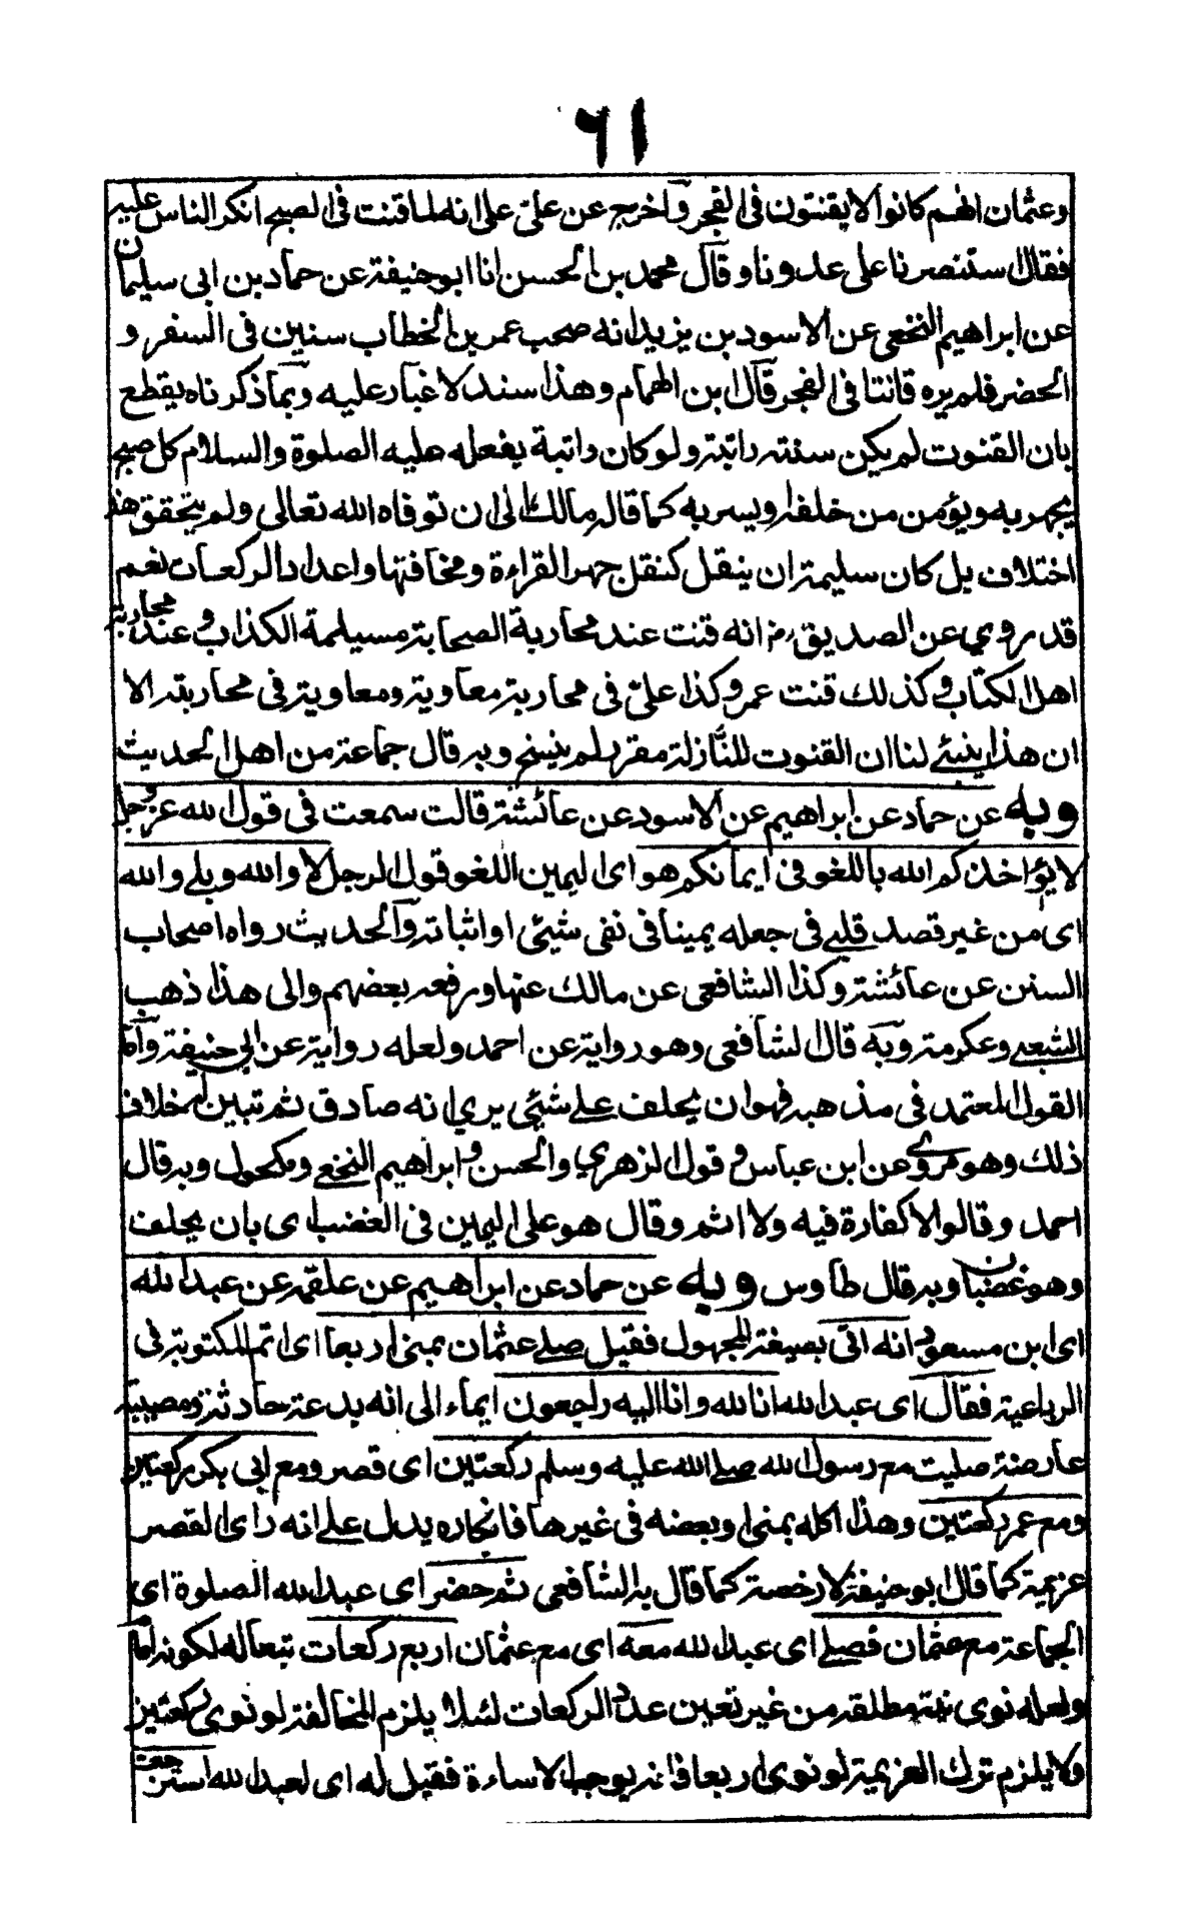 ٦١
وعثمان انهم كانوا لا يقنتون فى الفجر وآخرج عن علىّ على انه لما قنت فى الصبح انكر الناس عليه
فقال استنصرنا على عدونا وقآل محمد بن الحسن انا ابو حنيفة عن حماد بن ابى سليمان
عن ابراهيم النخعى عن الاسود بن يزيد انه صحب عمر بن الخطاب سنين فى السفر و
الحضر فلم يره قانتا فى الفجر قآل ابن الهمام وهذا سند لا غبار عليه وبما ذكرناه يقطع
بان القنوت لم يكن سنته راتبة ولو كان راتبة يفعله عليه الصلوة والسلام كل صبح
يجهر به ويؤمن من خلفه او يسر به كما قاله مالك الى ان توفاه الله تعالى ولم يتحقق هذ
اختلاف بل كان سليمة ان ينقل كنقل جهر القراءة ومخافتها واعداد الركعات نعم
قد روي عن الصديق رض انه قنت عند محاربة الصحابة مسيلمة الكذاب وعند محاربة
اهل الكتاب وكذلك قنت عمر وكذا علىّ فى محاربة معاوية ومعاوية فى محاربته الا
ان هذا ينبئ لنا ان القنوت للنَّازلة مقرر لم ينسخ وبه قال جماعة من اهل الحديث
وبه عن حماد عن ابراهيم عن الاسود عن عائشة قالت سمعت فى قول الله عز وجل
لا يؤاخذكم الله باللغو فى ايمانكم هو اى اليمين اللغو قول الرجل لا والله وبلى والله
اى من غير قصد قلبى فى جعله يمينا فى نفى شيئى او اثباته وآلحديث رواه اصحاب
السنن عن عائشة وكذا الشافعى عن مالك عنها ورفعه بعضهم والى هذا ذهب
الشعبى وعكرمة وبه قال الشافعى وهو رواية عن احمد ولعله رواية عن ابى حنيفة وآما
القول المعتمد فى مذهبه فهو ان يحلف على شيئى يرى انه صادق ثم تبين له خلاف
ذلك وهو مروى عن ابن عباس وقول الزهري والحسن وابراهيم النخعى ومكحول وبه قال
احمد وقالوا لا كفارة فيه ولا اثم وقال هو على اليمين فى الغضب اى بان يحلف
وهو غضبان وبه قال طاوس وبه عن حماد عن ابراهيم عن علقمه عن عبد الله
اى ابن مسعود انه اتى بصيغة المجهول فقيل صلى عثمان بمنى اربعا اى اتم المكتوبة فى
الرباعية فقال اى عبد الله انا لله وانا اليه راجعون ايماء الى انه بدعة حادثة ومصيبة
عارضة صليت مع رسول الله صلى الله عليه وسلم ركعتين اى قصر ومع ابى بكر ركعتين
ومع عمر ركعتين وهذا كله بمنى او بعضه فى غيرها فانكاره يدل على انه راى القصر
عزيمة كما قال ابو حنيفة لا رخصة كما قال به الشافعى ثم حضر اى عبد الله الصلوة اى
الجماعة مع عثمان فصلى اى عبد الله معه اى مع عثمان اربع ركعات تبعا له لكونه اما
ولعله نوى نية مطلقه من غير تعين عدد الركعات لئلا يلزم المخالفة لو نوى ركعتين
ولا يلزم ترك العزيمة لو نوى اربعا فانه يوجب الاساءة فقيل له اى لعبد الله استرجعت